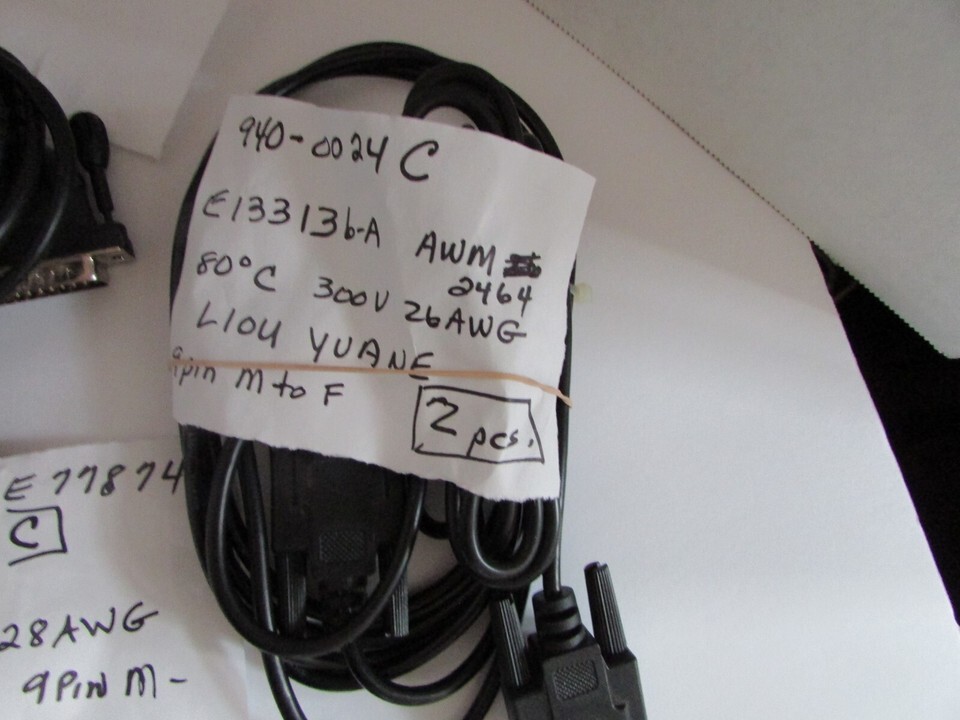 940-0024 C
E133136-A AWM
2464
80°C 300V 26AWG
LIOU YUANE
9pin M to F
2 pcs.
E77874
C
28AWG
9PIN M-